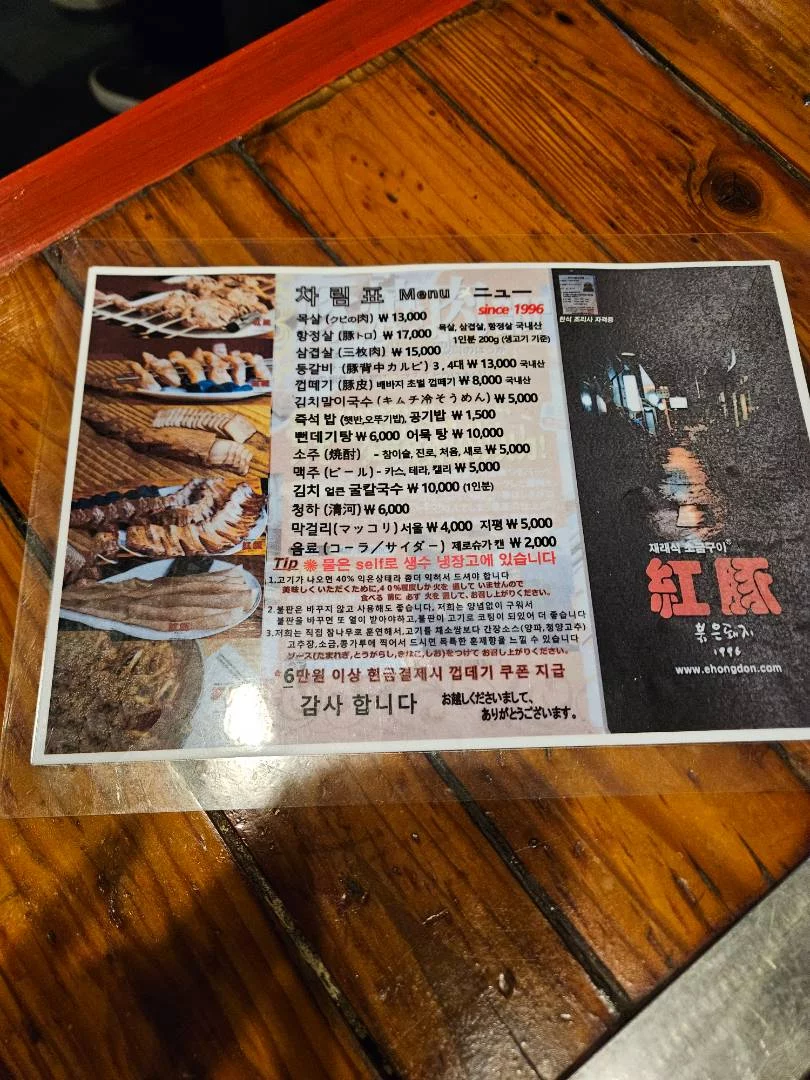 차림표 Menu メニュー
since 1996
목살 (クビの肉) ₩ 13,000
항정살 (豚トロ) ₩ 17,000
목살, 삼겹살, 항정살 국내산
1인분 200g (생고기 기준)
삼겹살 (三枚肉) ₩ 15,000
등갈비 (豚背中カルビ) 3,4대 ₩ 13,000 국내산
껍떼기 (豚皮) 배바지 초벌 껍떼기 ₩ 8,000 국내산
김치말이국수 (キムチ冷そうめん) ₩ 5,000
즉석 밥 (햇반,오뚜기밥), 공기밥 ₩ 1,500
뻔데기탕 ₩ 6,000 어묵 탕 ₩ 10,000
소주 (焼酎) - 참이슬, 진로, 처음, 새로 ₩ 5,000
맥주 (ビール) - 카스, 테라, 켈리 ₩ 5,000
김치 얼큰 굴칼국수 ₩ 10,000 (1인분)
청하 (清河) ₩ 6,000
막걸리(マッコリ) 서울 ₩ 4,000 지평 ₩ 5,000
음료 (コーラ／サイダー) 제로슈가 캔 ₩ 2,000
Tip ❋ 물은 self로 생수 냉장고에 있습니다
1.고기가 나오면 40% 익은상태라 좀더 익혀서 드셔야 합니다
美味しくいただくために,40%程度しか火を 通して いませんので
食べる 前に 必ず 火を 通して, お召し上がりください。
2.불판은 바꾸지 않고 사용해도 좋습니다, 저희는 양념없이 구워서
불판을 바꾸면 또 열이 받아야하고,불판이 고기로 코팅이 되있어 더 좋습니다
3.저희는 직접 참나무로 훈연해서,고기를 채소쌈보다 간장소스(양파,청양고추)
고추장,소금,콩가루에 찍어서 드시면 독특한 훈제향을 느낄 수 있습니다
ソース(たまねぎ,とうがらし,きなこ,しお)をつけて お召し上がりください。
6만원 이상 현금결제시 껍데기 쿠폰 지급
감사 합니다
お越しくださいまして、
ありがとうございます。
한식 조리사 자격증
재래식 소금구이
紅豚
붉은돼지
1996
www.ehongdon.com